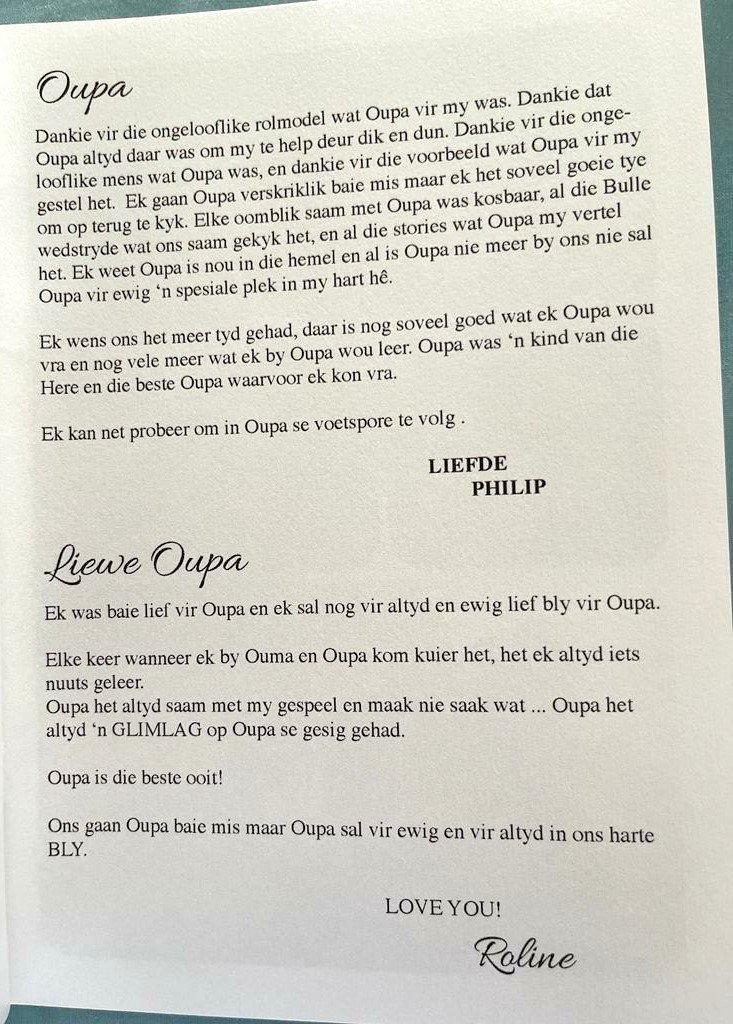 Oupa
Dankie vir die ongelooflike rolmodel wat Oupa vir my was. Dankie dat
Oupa altyd daar was om my te help deur dik en dun. Dankie vir die onge-
looflike mens wat Oupa was, en dankie vir die voorbeeld wat Oupa vir my
gestel het. Ek gaan Oupa verskriklik baie mis maar ek het soveel goeie tye
om op terug te kyk. Elke oomblik saam met Oupa was kosbaar, al die Bulle
wedstryde wat ons saam gekyk het, en al die stories wat Oupa my vertel
het. Ek weet Oupa is nou in die hemel en al is Oupa nie meer by ons nie sal
Oupa vir ewig ‘n spesiale plek in my hart hê.
Ek wens ons het meer tyd gehad, daar is nog soveel goed wat ek Oupa wou
vra en nog vele meer wat ek by Oupa wou leer. Oupa was ‘n kind van die
Here en die beste Oupa waarvoor ek kon vra.
Ek kan net probeer om in Oupa se voetspore te volg .
LIEFDE
PHILIP
Liewe Oupa
Ek was baie lief vir Oupa en ek sal nog vir altyd en ewig lief bly vir Oupa.
Elke keer wanneer ek by Ouma en Oupa kom kuier het, het ek altyd iets
nuuts geleer.
Oupa het altyd saam met my gespeel en maak nie saak wat ... Oupa het
altyd ‘n GLIMLAG op Oupa se gesig gehad.
Oupa is die beste ooit!
Ons gaan Oupa baie mis maar Oupa sal vir ewig en vir altyd in ons harte
BLY.
LOVE YOU!
Roline